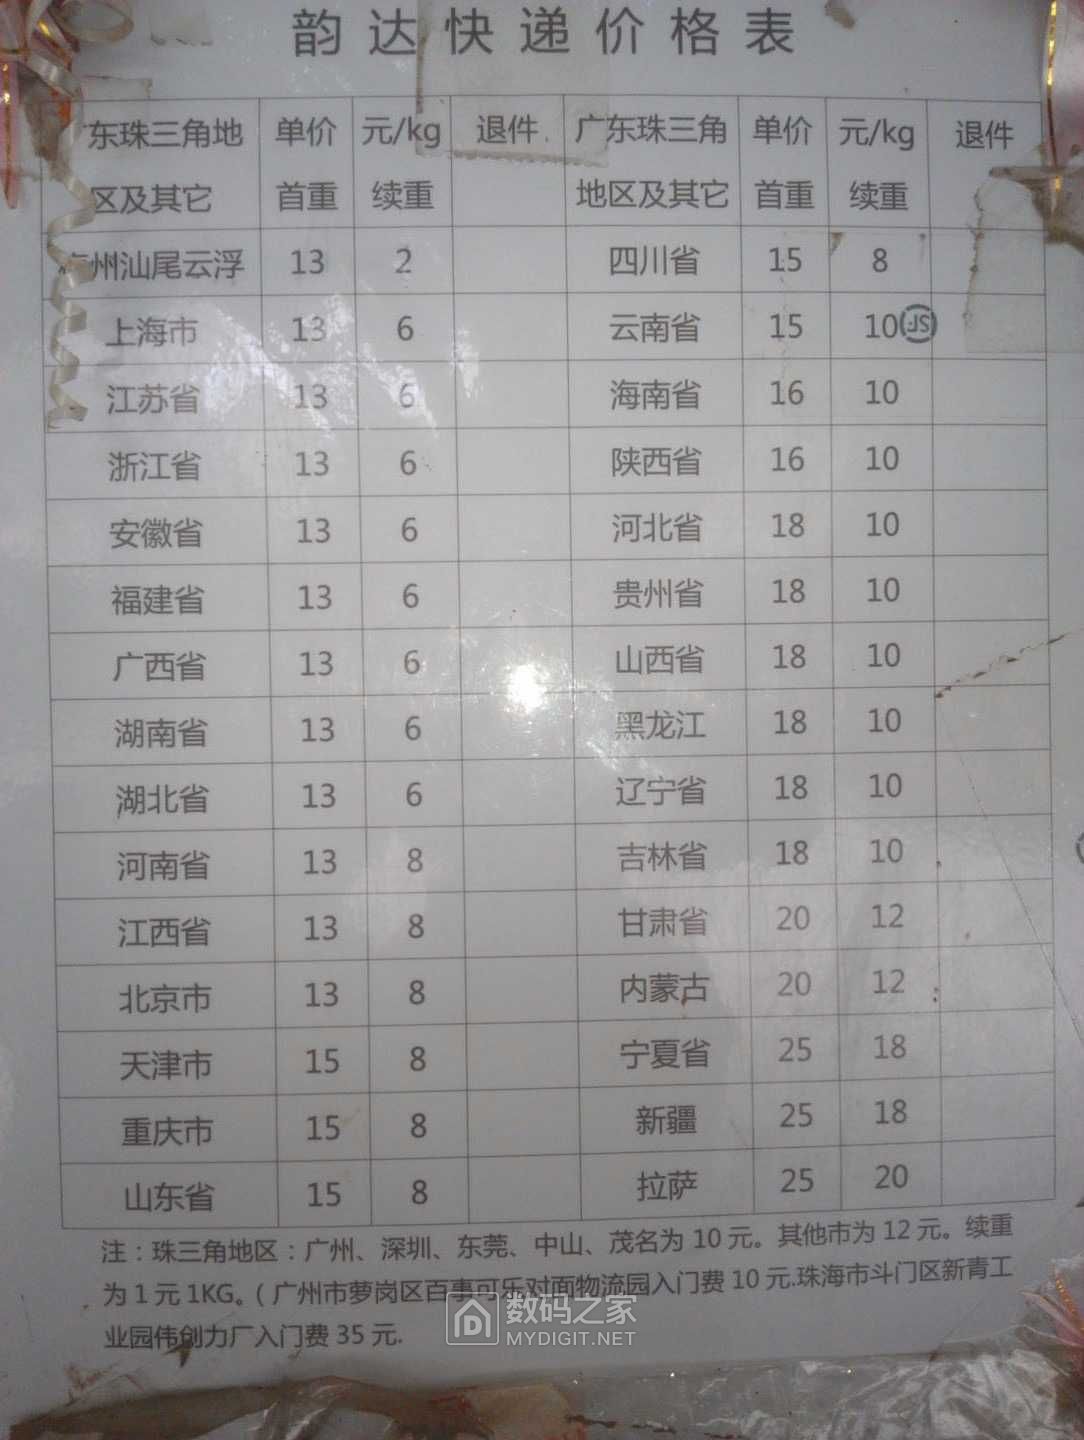 韵达快递价格表
东珠三角地 单价 元/kg 退件 广东珠三角 单价 元/kg 退件
区及其它 首重 续重 地区及其它 首重 续重
州汕尾云浮 13 2 四川省 15 8
上海市 13 6 云南省 15 10
江苏省 13 6 海南省 16 10
浙江省 13 6 陕西省 16 10
安徽省 13 6 河北省 18 10
福建省 13 6 贵州省 18 10
广西省 13 6 山西省 18 10
湖南省 13 6 黑龙江 18 10
湖北省 13 6 辽宁省 18 10
河南省 13 8 吉林省 18 10
江西省 13 8 甘肃省 20 12
北京市 13 8 内蒙古 20 12
天津市 15 8 宁夏省 25 18
重庆市 15 8 新疆 25 18
山东省 15 8 拉萨 25 20
注：珠三角地区：广州、深圳、东莞、中山、茂名为 10 元。其他市为 12 元。续重
为 1 元 1KG。( 广州市萝岗区百事可乐对面物流园入门费 10 元.珠海市斗门区新青工
业园伟创力厂入门费 35 元.
数码之家
MYDIGIT.NET